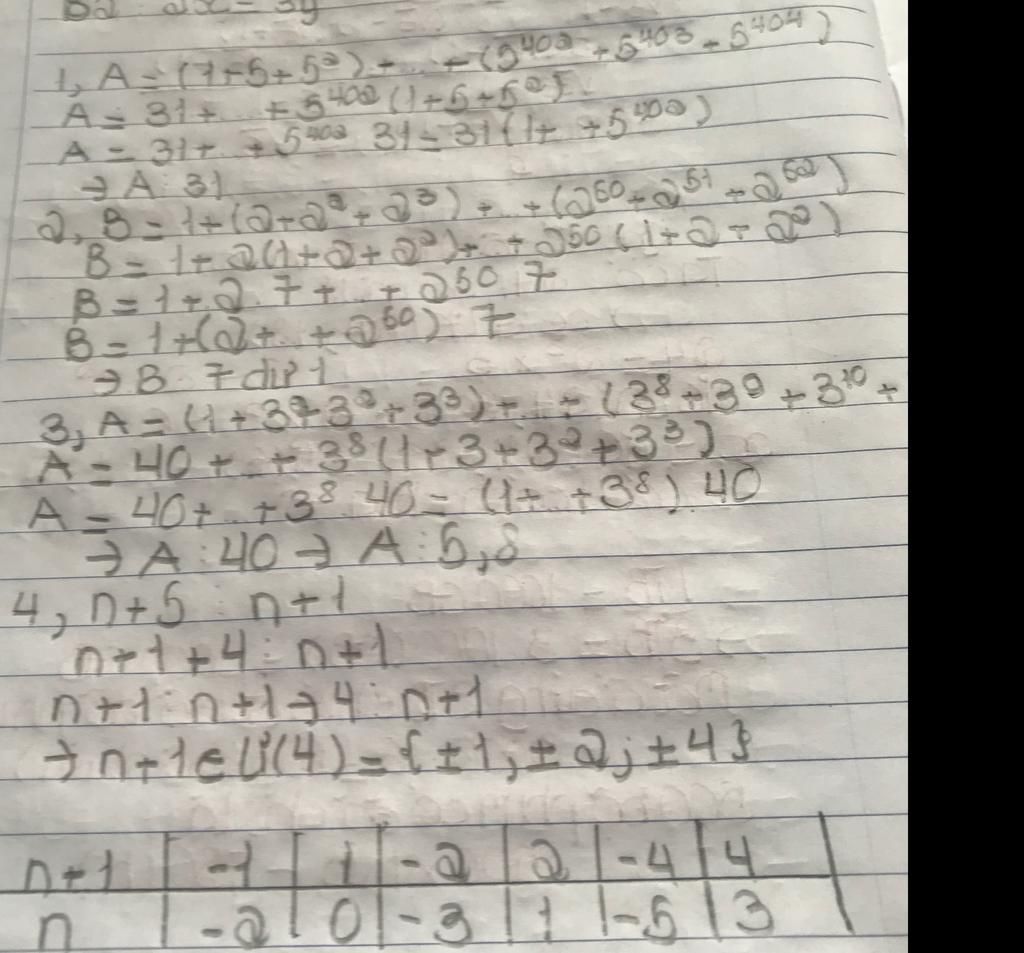 1, A = (1+5+5²) + .. + (5⁴⁰² + 5⁴⁰³ + 5⁴⁰⁴)
A = 31 + .. + 5⁴⁰² (1+5+5²)
A = 31 + .. + 5⁴⁰² . 31 = 31(1+ .. +5⁴⁰²)
→ A ⋮ 31
2, B = 1 + (2+2²+2³) + .. + (2⁵⁰+2⁵¹+2⁵²)
B = 1 + 2(1+2+2²) + .. + 2⁵⁰ (1+2+2²)
B = 1 + 2.7 + .. + 2⁵⁰.7
B = 1 + (2+ .. +2⁵⁰) . 7
→ B : 7 dư 1
3, A = (1+3+3²+3³) + .. + (3⁸+3⁹+3¹⁰+
A = 40 + .. + 3⁸ (1+3+3²+3³)
A = 40 + .. + 3⁸.40 = (1+ .. +3⁸).40
→ A ⋮ 40 → A ⋮ 5,8
4, n+5 ⋮ n+1
n+1+4 ⋮ n+1
n+1 ⋮ n+1 → 4 ⋮ n+1
→ n+1 ∈ Ư(4) = {±1; ±2; ±4}
n+1 | -1 | 1 | -2 | 2 | -4 | 4
n | -2 | 0 | -3 | 1 | -5 | 3